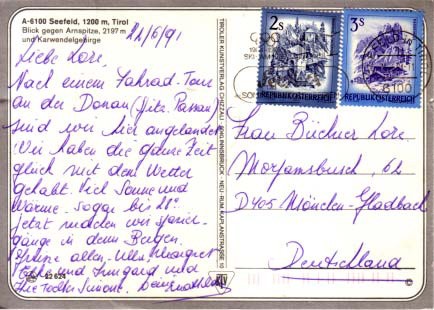 A-6100 Seefeld, 1200 m, Tirol
Blick gegen Arnspitze, 2197 m
und Karwendelgebirge
22/6/91
Liebe Lore.
Nach einem Fahrrad-Tour
an der Donau (Linz, Passau)
sind wir hier angelandet
Wir haben die ganze Zeit
glück mit dem Wetter
gehabt. Viel Sonne und
Wärme. sogar bis
jetzt machen wir spazier-
gänge in dem Bergen.
allen.
und Irmgard und
Simone.
62 624
TIROLER KUNSTVERLAG CHIZZALI INNSBRUCK NEU-RUM KAPLANSTRASSE 10
2s
REPUBLIK ÖSTERREICH
3s
REPUBLIK ÖSTERREICH
6100
Frau Bücher Lore
Morjansbusch, 62
D405 Mönchen-Gladbach
Deutschland